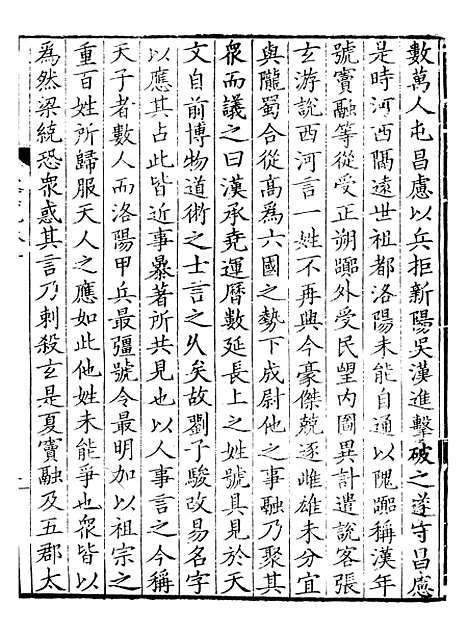 數萬人屯昌慮以兵拒新陽吳漢進擊破之遂守昌慮
是時河西隔遠世祖都洛陽未能自通以隗囂稱漢年
號竇融等從受正朔囂外受民望內圖異計遣說客張
玄游說西河言一姓不再興今豪傑競逐雌雄未分宜
與隴蜀合從高爲六國之勢下成尉他之事融乃聚其
衆而議之曰漢承堯運曆數延長上之姓號具見於天
文自前博物道術之士言之久矣故劉子駿改易名字
以應其占此皆近事暴著所共見也以人事言之今稱
天子者數人而洛陽甲兵最彊號令最明加以祖宗之
重百姓所歸服天人之應如此他姓未能爭也衆皆以
爲然梁統恐衆惑其言乃刺殺玄是夏竇融及五郡太